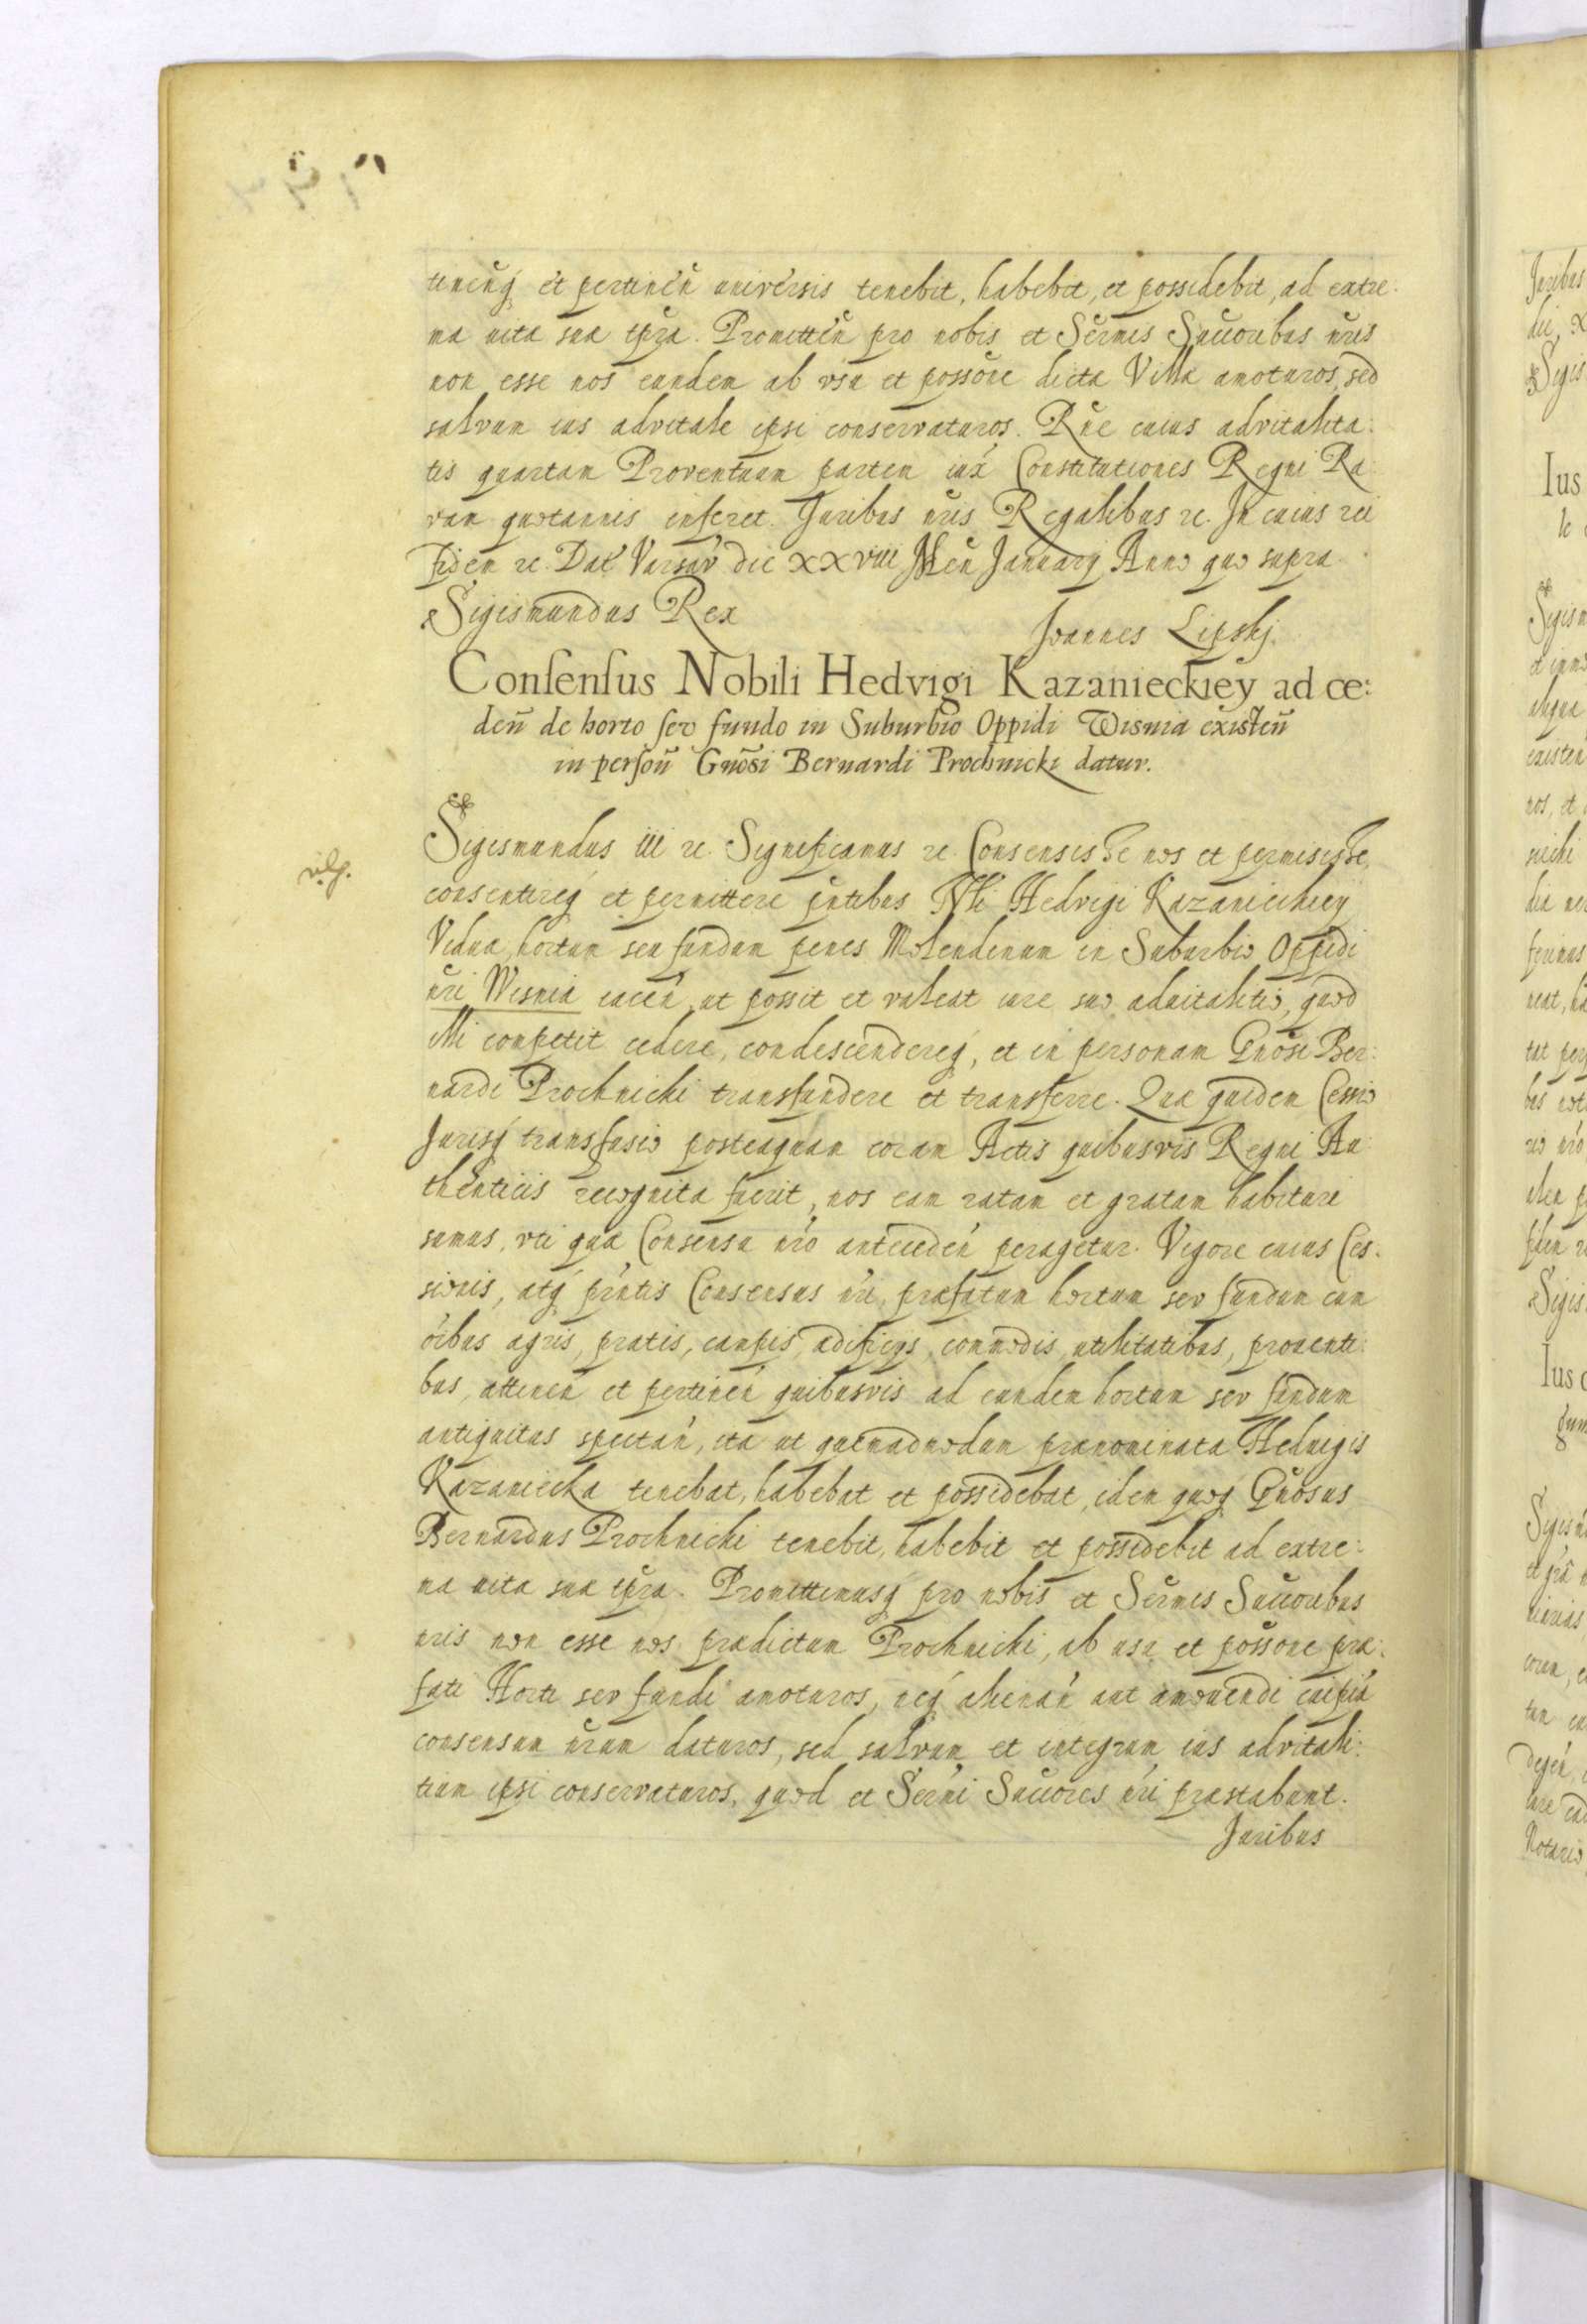 tineñq́ et pertineñ universis tenebit, habebit, et possidebit, ad extre:
ma vitæ suæ tp̃ra. Promitteñ pro nobis et Serm̃is Succoribus nr̃is
non esse nos eundem ab vsu et possoñe dictæ Villæ amoturos, sed
salvum ius advitale ipsi conservaturos. Rñe cuius advitalita:
tis quartam Proventuum partem iux̃ Constitutiones Regni Ra:
vam quotannis inferet. Juribus nr̃is Regalibus rc. In cuius rei
fidem rc. Dat̃ Varsav̈ die XXVIII Men̈ Januarij Anno quo supra.
Sigismundus Rex
Joannes Lipskj.
Consensus Nobili Hedvigi Kazanieckiey ad ce:
deñ de horto sev fundo in Suburbio Oppidi Wisnia existeñ
in persoñ Gnõsi Bernardi Prochnicki datur.
Sigismundus III rc. Significamus rc. Consensisse nos et permisisse,
vig.
consentireq́ et permittere p̃ntibus Nb̃li Hedvigi Kazanieckiey
Viduæ, hortum seu fundum penes Molendinum in Suburbio Oppidi
nr̃i Wisnia iaceñ, ut possit et valeat iure suo advitalitio, quod
illi competit cedere, condescendereq́, et in personam Gnõsi Ber:
nardi Prochnicki transfundere et transferre. Quæ quidem Cessio
Jurisq́ transfusio posteaquam coram Actis quibusvis Regni Au:
thenticis recognita fuerit, nos eam ratam et gratam habituri
sumus, vti quæ Consensu nr̃o antecedeñ peragetur. Vigore cuius Ces:
sionis, atq́ prñtis Consensus nr̃i, præfatum hortum sev fundum cum
õibus agris, pratis, campis, ædificijs, commodis, utilitatibus, proventi:
bus, attineñ et pertineñ quibusvis ad eundem hortum sev fundum
antiquitus spectañ, ita ut quemadmodum prænominata Hedvigis
Kazaniecka tenebat, habebat et possidebat, idem quoq́ Gnõsus
Bernardus Prochnicki tenebit, habebit et possidebit ad extre:
ma vitæ suæ tp̃ra. Promittimusq́ pro nobis et Serm̃is Succoribus
nr̃is non esse nos prædictum Prochnicki, ab usu et possoñe præ:
fati Horti sev fundi amoturos, neq́ alienañ aut amovendi cuipiã
consensum nr̃um daturos, sed salvum et integrum ius advitali:
tium ipsi conservaturos, quod et Serñi Succores nr̃i præstabunt.
Juribus